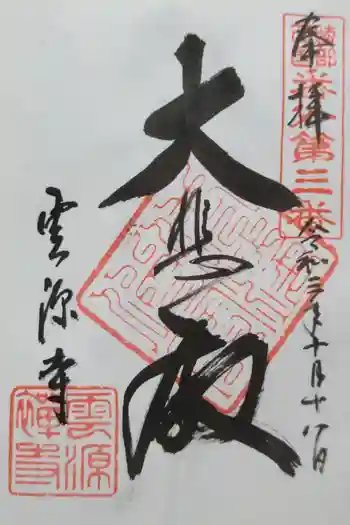 奉拝
第三番
令和三年十月十八日
大悲殿
雲源寺
雲源禅寺